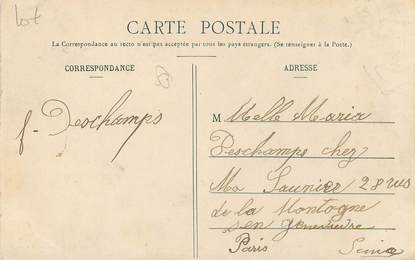 lot
CARTE POSTALE
La Correspondance au recto n'est pas acceptée par tous les pays étrangers. (Se renseigner à la Poste.)
CORRESPONDANCE
ADRESSE
f. Deschamps
M Melle Maria
Deschamps chez
Mr Saunier 28 rue
de la Montagne
Paris Seine